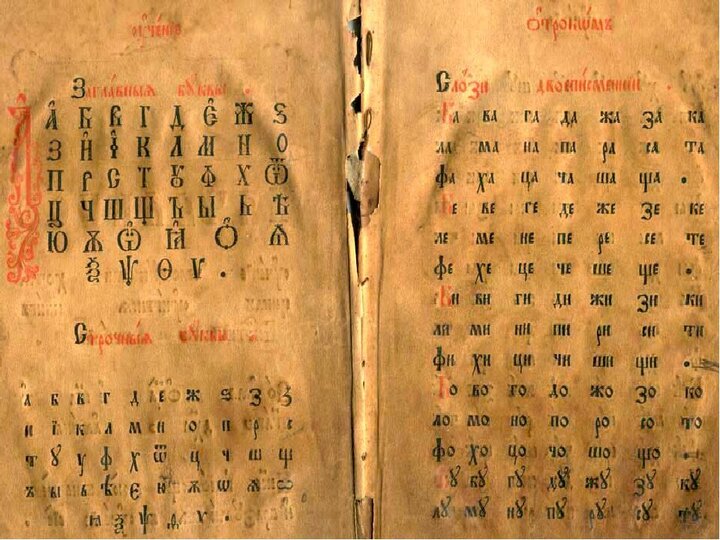 учение
Заглавныя буквы .
А Б В Г Д Е Ж Ѕ
З И І К Л М Н О
П Р С Т Ꙋ Ф Х Ѿ
Ц Ч Ш Щ Ъ Ы Ь Ѣ
Ю Ѫ Ѡ Ꙗ Ѧ
Ѯ Ѱ Ѳ Ѵ .
Строчныя буквы
а б в г д е ж ѕ з
и і к л м н о п р с
т ꙋ у ф х ѿ ц ч ш щ
ъ ы ь ѣ є ю ѫ ѡ ѧ
ꙗ ѯ ѱ ѳ ѵ .
Отрокѡмъ
Слози двоеписменнии .
Ба ва га да жа за ка
ла ма на па ра са та
фа ха ца ча ша ща .
Бе ве ге де же зе ке
ле ме не пе ре се те
фе хе це че ше ще .
Би ви ги ди жи зи ки
ли ми ни пи ри си ти
фи хи ци чи ши щи .
Бо во го до жо зо ко
ло мо но по ро со то
фо хо цо чо шо що .
бꙋ гꙋ дꙋ жꙋ зꙋ кꙋ
лꙋ мꙋ нꙋ пꙋ рꙋ сꙋ тꙋ